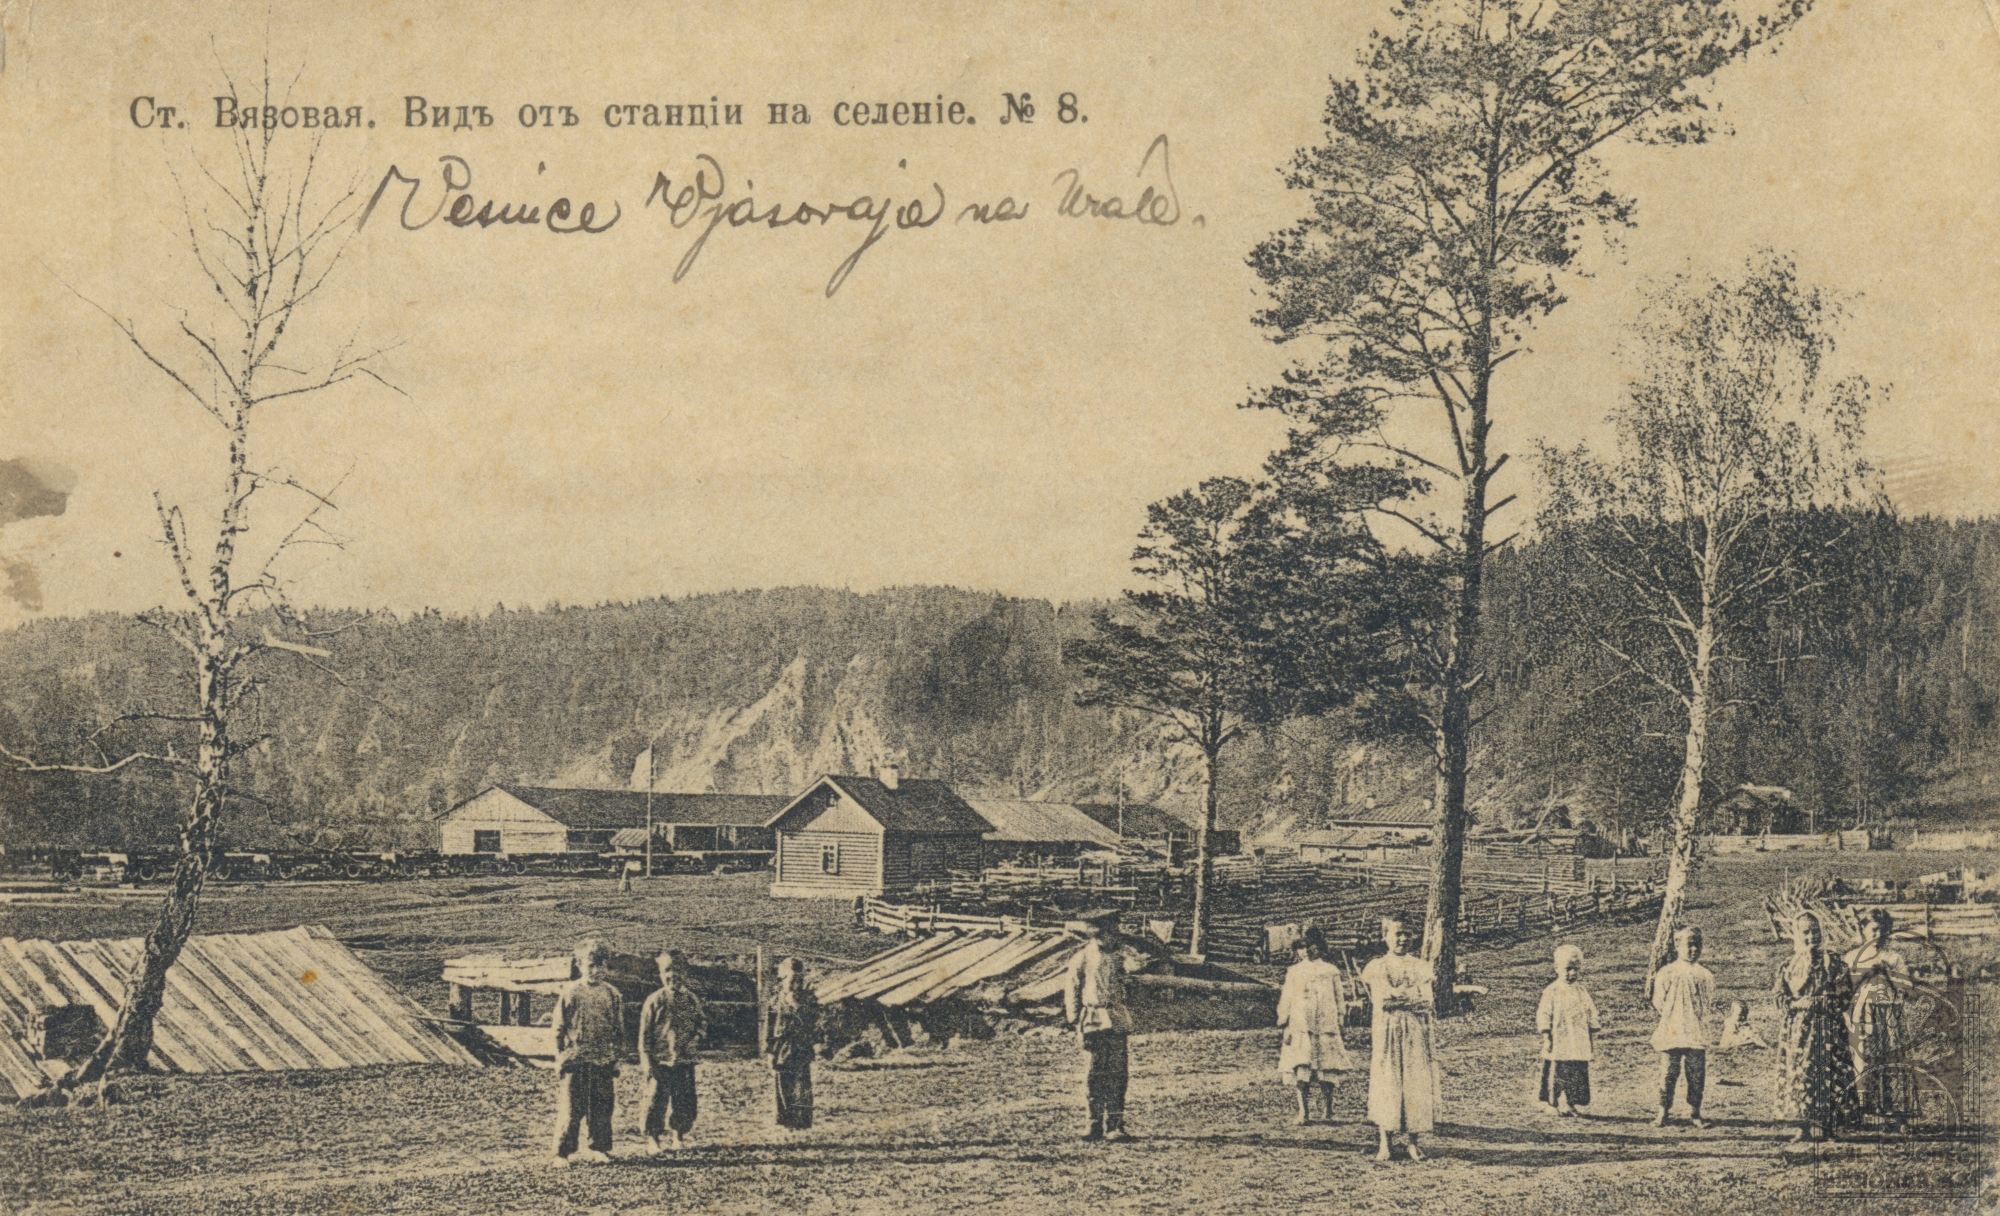 Ст. Вязовая. Видъ отъ станціи на селеніе. № 8.
Vesnice Vjasovaja na Urale.